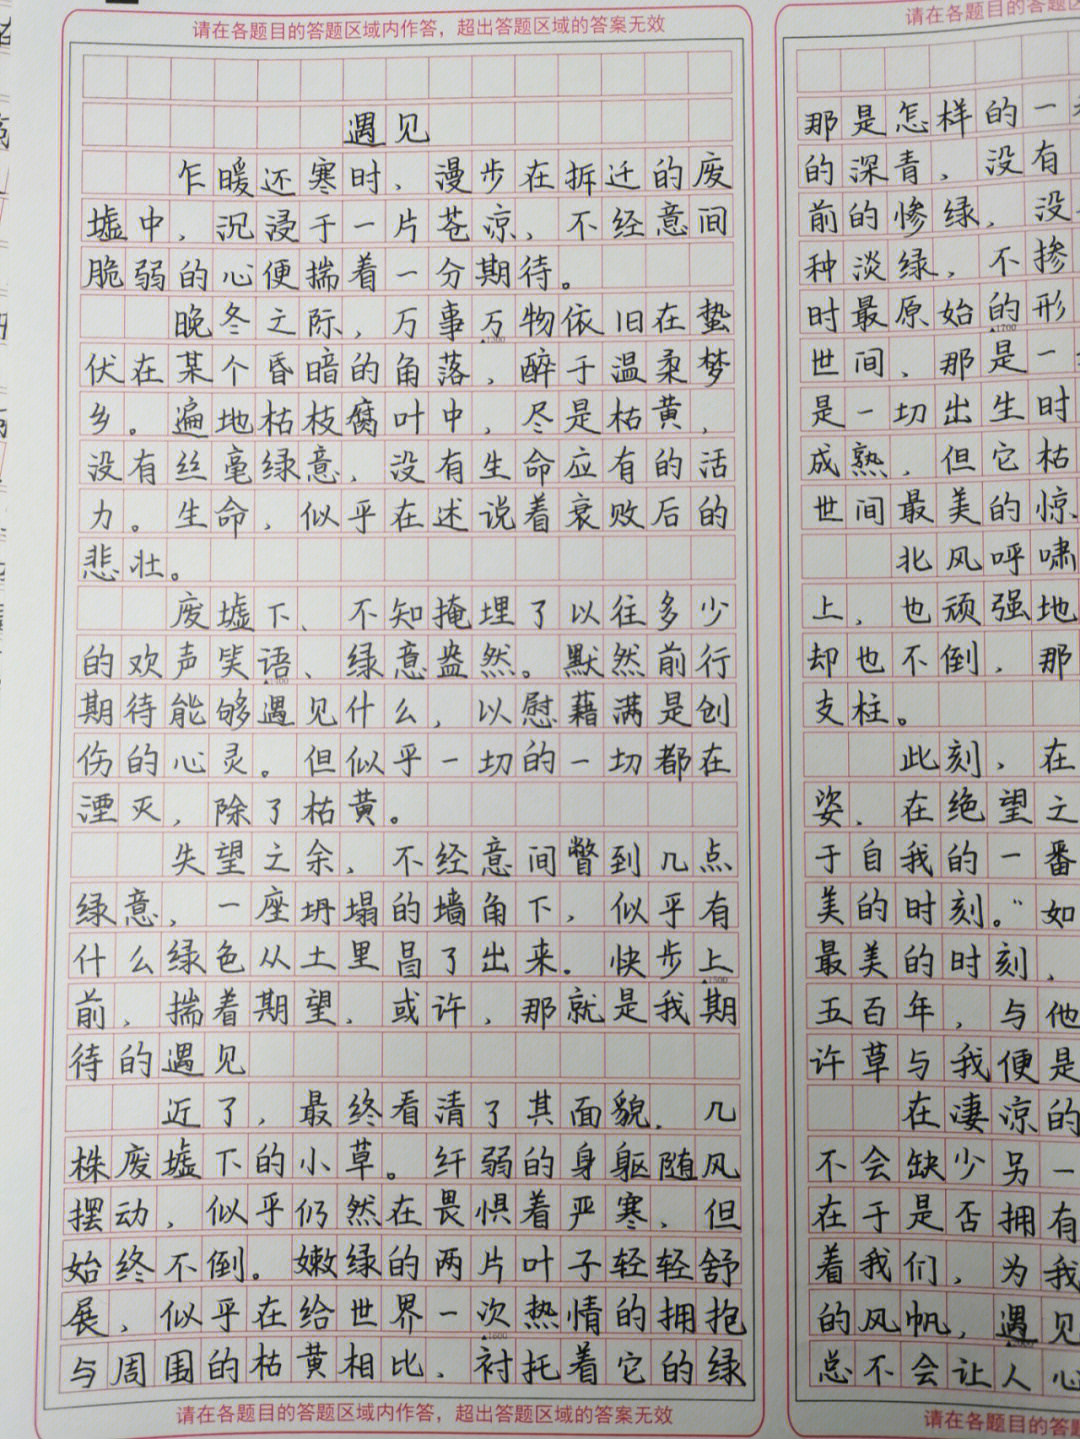 请在各题目的答题区域内作答，超出答题区域的答案无效
遇见
乍暖还寒时，漫步在拆迁的废
墟中，沉浸于一片苍凉，不经意间
脆弱的心便揣着一分期待。
晚冬之际，万事万物依旧在蛰
伏在某个昏暗的角落，醉于温柔梦
乡。遍地枯枝腐叶中，尽是枯黄，
没有丝毫绿意，没有生命应有的活
力。生命，似乎在述说着衰败后的
悲壮。
废墟下、不知掩埋了以往多少
的欢声笑语、绿意盎然。默然前行
期待能够遇见什么，以慰藉满是创
伤的心灵。但似乎一切的一切都在
湮灭，除了枯黄。
失望之余，不经意间瞥到几点
绿意，一座坍塌的墙角下，似乎有
什么绿色从土里冒了出来。快步上
▲1500
前，揣着期望，或许，那就是我期
待的遇见
近了，最终看清了其面貌．几
株废墟下的小草。纤弱的身躯随风
摆动，似乎仍然在畏惧着严寒，但
始终不倒。嫩绿的两片叶子轻轻舒
展，似乎在给世界一次热情的拥抱
▲1600
与周围的枯黄相比，衬托着它的绿
请在各题目的答题区域内作答，超出答题区域的答案无效
请在各题目的答题区
那是怎样的一
的深青，没有
前的惨绿，没
种淡绿，不掺
时最原始的形
▲1700
世间、那是一
是一切出生时
成熟，但它枯
世间最美的惊
北风呼啸
上，也顽强地
却也不倒，那
支柱。
此刻，在
姿．在绝望之
于自我的一番
美的时刻。"如
最美的时刻，
五百年，与他
许草与我便是
在凄凉的
不会缺少另一
在于是否拥有
着我们，为我
的风帆，遇见
总不会让人心
请在各题目的答题